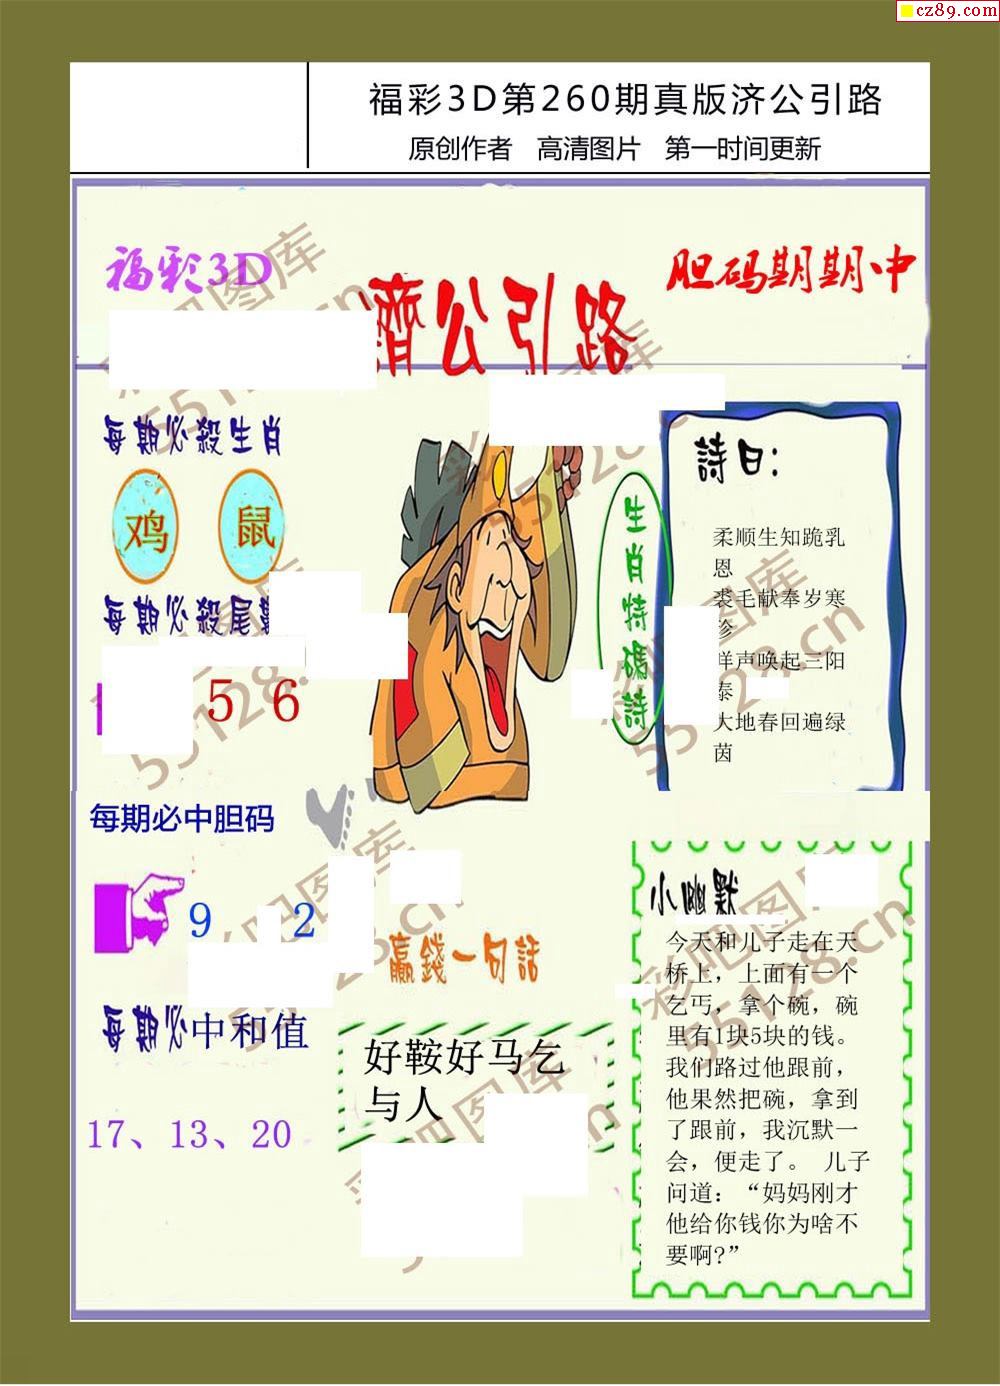 cz89.com
福彩3D第260期真版济公引路
原创作者 高清图片 第一时间更新
福彩3D
濟公引路
胆码期期中
每期必殺生肖
鸡 鼠
每期必殺尾數
5 6
每期必中胆码
9 2
每期必中和值
17、13、20
生肖特碼詩
詩曰：
柔顺生知跪乳
恩
裘毛献奉岁寒
珍
羊声唤起三阳
泰
大地春回遍绿
茵
赢錢一句話
好鞍好马乞
与人
小幽默
今天和儿子走在天
桥上，上面有一个
乞丐，拿个碗，碗
里有1块5块的钱。
我们路过他跟前，
他果然把碗，拿到
了跟前，我沉默一
会，便走了。 儿子
问道：“妈妈刚才
他给你钱你为啥不
要啊?”
彩吧图库
55128.cn